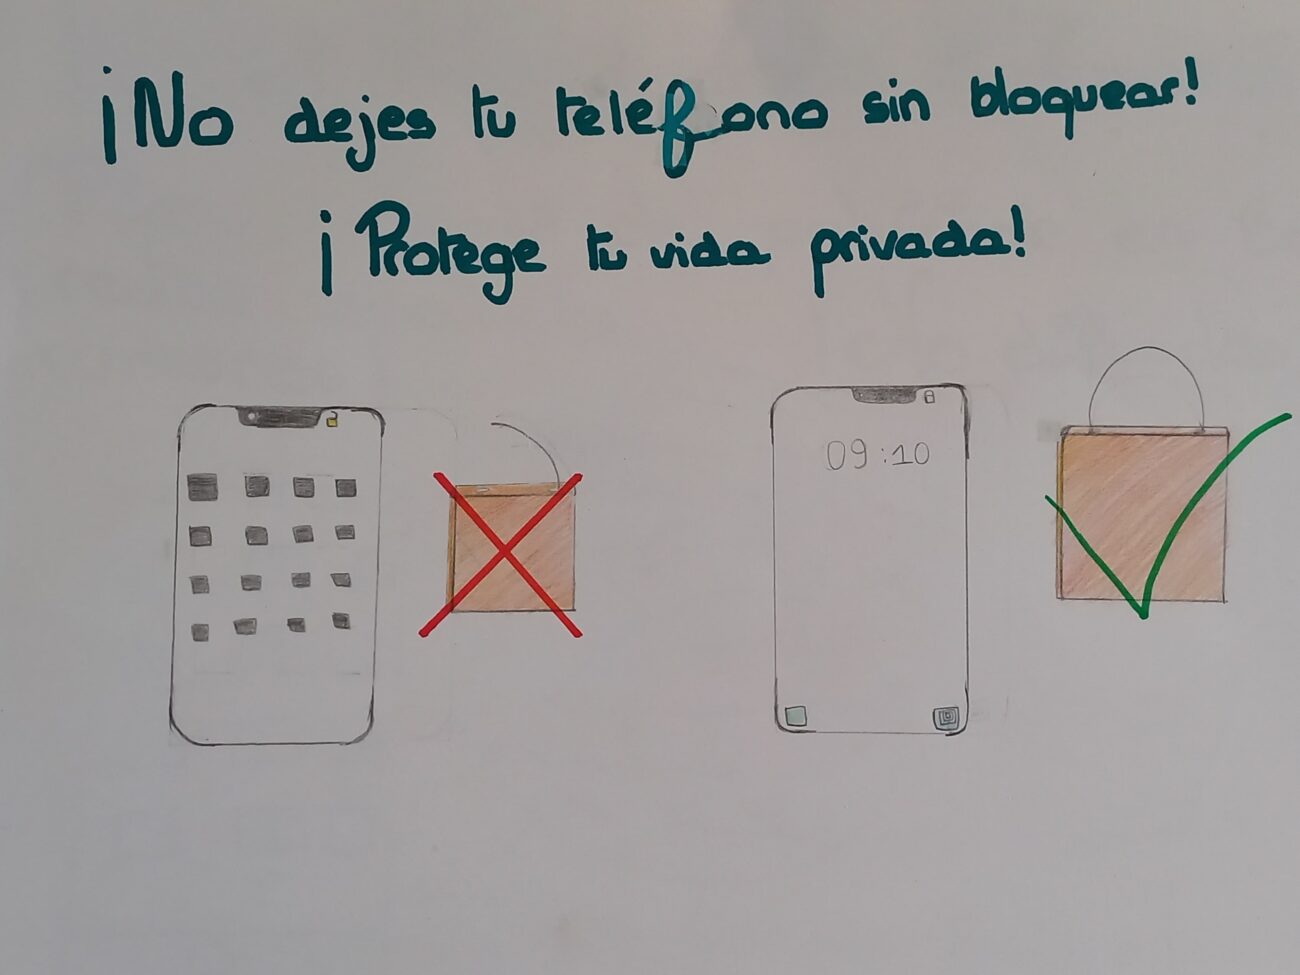 ¡No dejes tu teléfono sin bloquear!
¡Protege tu vida privada!
09:10